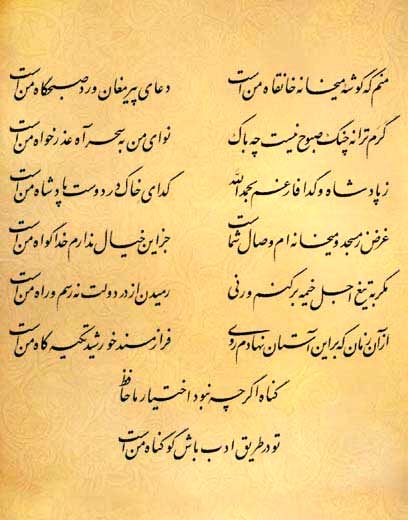 منم که گوشه میخانه خانقاه من است دعای پیر مغان ورد صبحگاه من است
گرم ترانه چنگ صبوح نیست چه باک نوای من به سحر آه عذرخواه من است
ز پادشاه و گدا فارغم بحمدالله گدای خاک در دوست پادشاه من است
غرض ز مسجد و میخانه ام وصال شماست جز این خیال ندارم خدا گواه من است
مگر به تیغ اجل خیمه برکنم ور نی رمیدن از در دولت نه رسم و راه من است
از آن زمان که بر این آستان نهادم روی فراز مسند خورشید تکیه گاه من است
گناه اگر چه نبود اختیار ما حافظ
تو در طریق ادب باش گو گناه من است